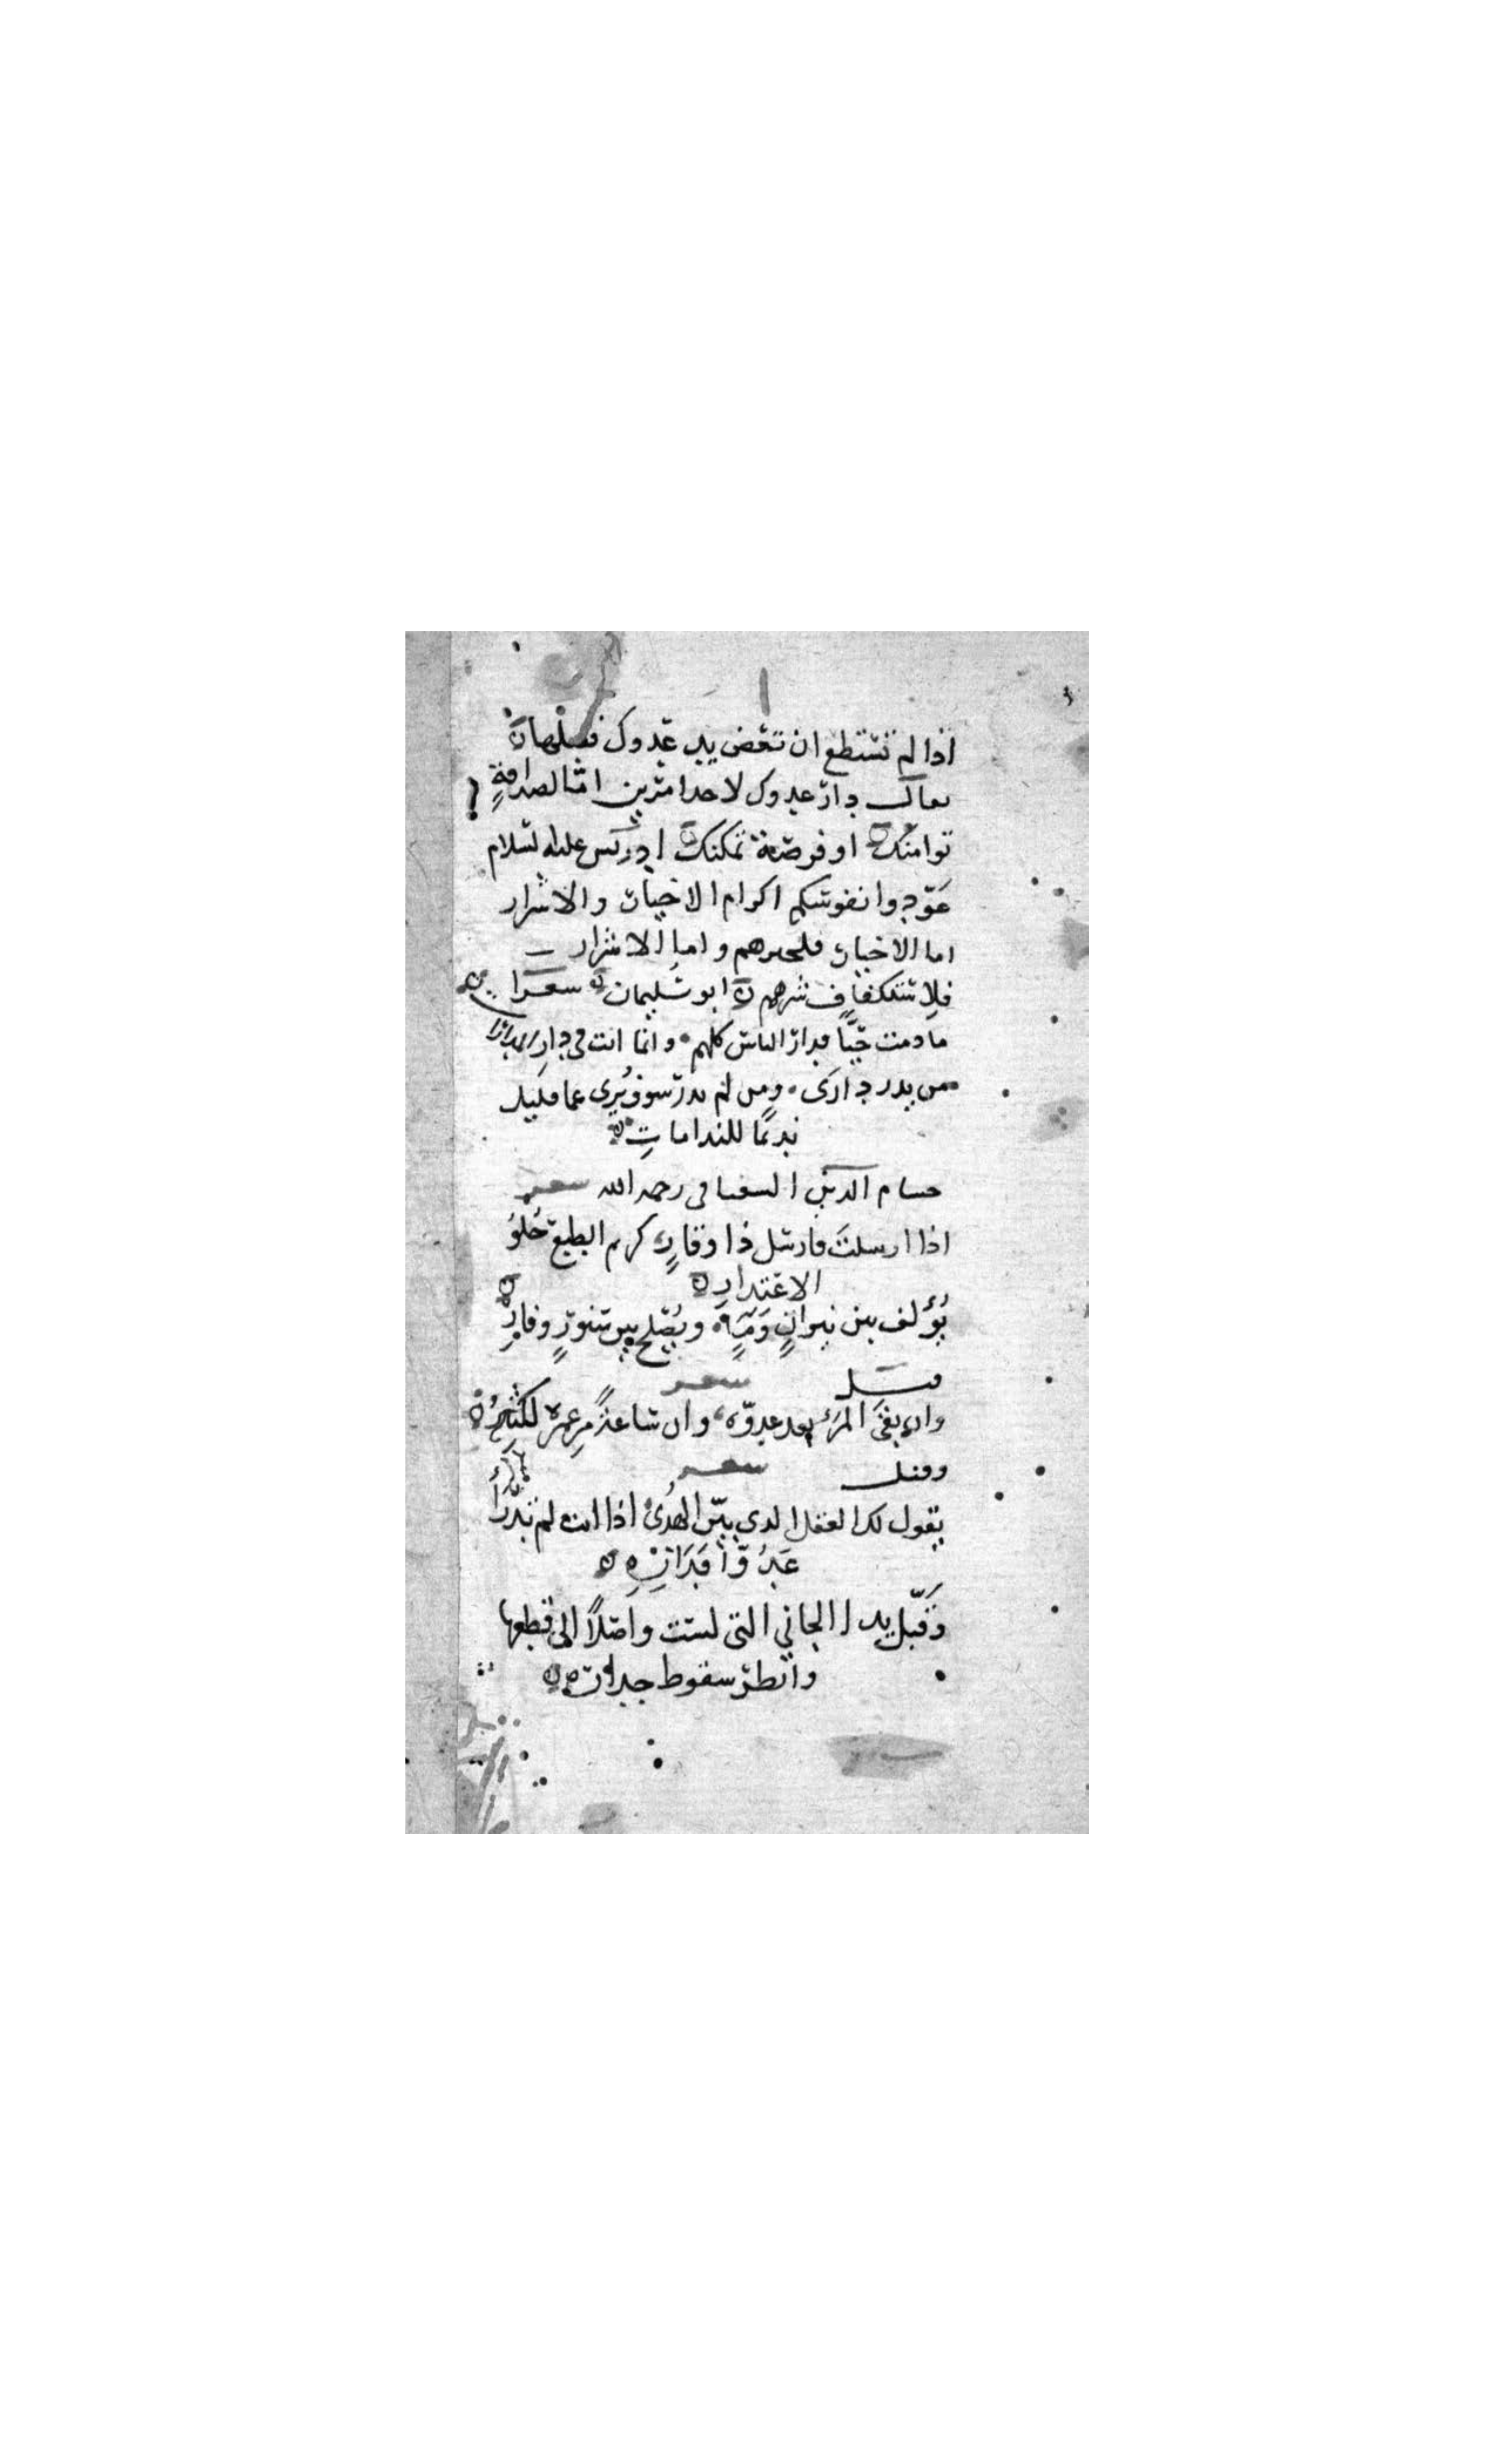 اذا لم تستطع ان تعض يد عدوك فقبلها
يقال دار عدوك لاحد امرين اما لصداقة
تؤمنك او فرصة تمكنك ادريس عليه السلام
عودوا نفوسكم اكرام الاخيار والاشرار
اما الاخيار فلخيرهم واما الاشرار
فلاستكفاف شرهم ابو سليمان سعر
ما دمت حيا فدار الناس كلهم وانما انت في دار المداراة
من يدر دارى ومن لم يدر سوف يرى عما قليل
نديما للندامات
حسام الدين السغناقي رحمه الله سعر
اذا ارسلت فارسل ذا وقار كريم الطبع حلو
الاعتذار
يؤلف بين نيران ومية ويصلح بين سنور وفار
قيل سعر
وان بقى المرء بعد عدوه وان ساعة من عمره لكثير
وقيل سعر
يقول لك العقل الذي بين الهدى اذا انت لم تدرأ
عدوا فداره
وقبل يد الجاني التي لست واصلا الى قطعها
وانظر سقوط جداره